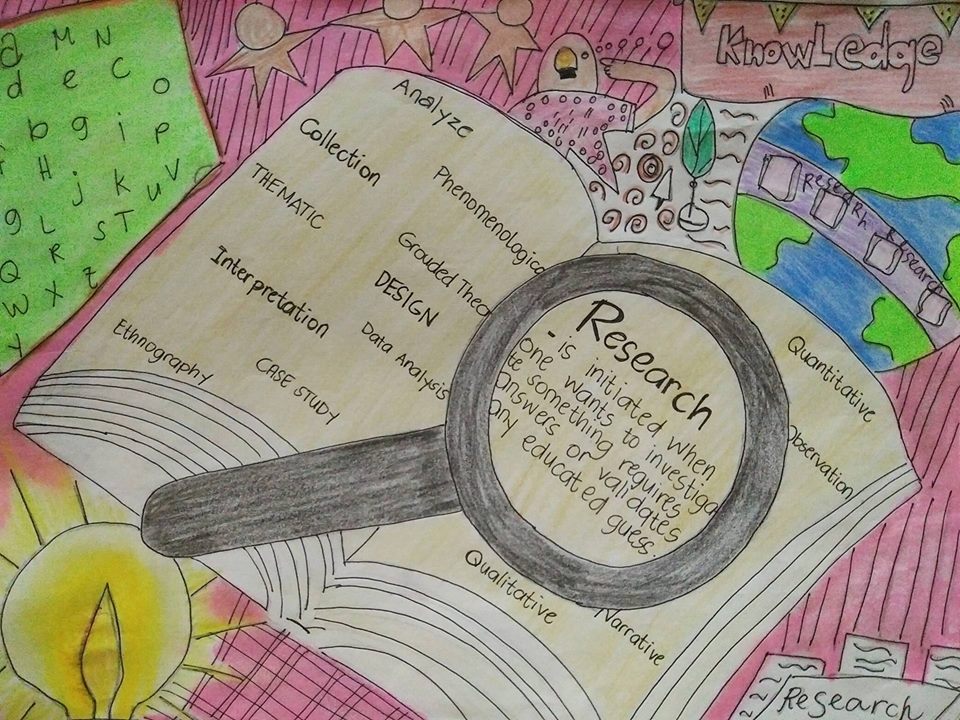 a M N
d e c o
b g i p
H j k u v
g L S T
Q R
W X z
y
KnowLedge
Research
Research
Analyze
Collection
Phenomenologica
THEMATIC
Grouded Theo
Interpretation
DESIGN
Data Analysis
Ethnography
CASE STUDY
Research
- is initiated when
One wants to investiga
te something requires
Answers or validates
any educated guess.
Quantitative
Observation
Qualitative
Narrative
Research